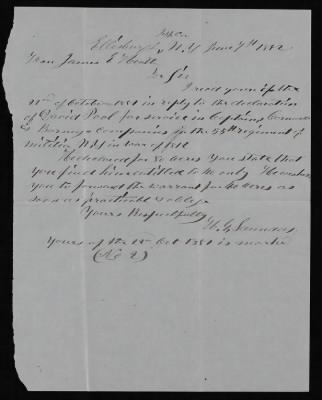 Ellisburgh, N.Y June 7th 1852
James E Heath
Dr Sir
I recd yours of the
of October 1851 in reply to the declaration
of David Pool for service in Captains
& Companies in the 55th Regiment of
Militia N.Y in war of 1812
He declared for 80 acres You state that
you find him entitled to 40 only
you to forward the warrant for 40 acres as
soon as practicable & oblige
Yours Respectfully
yours of the Oct 1851 is marked
(No 2)